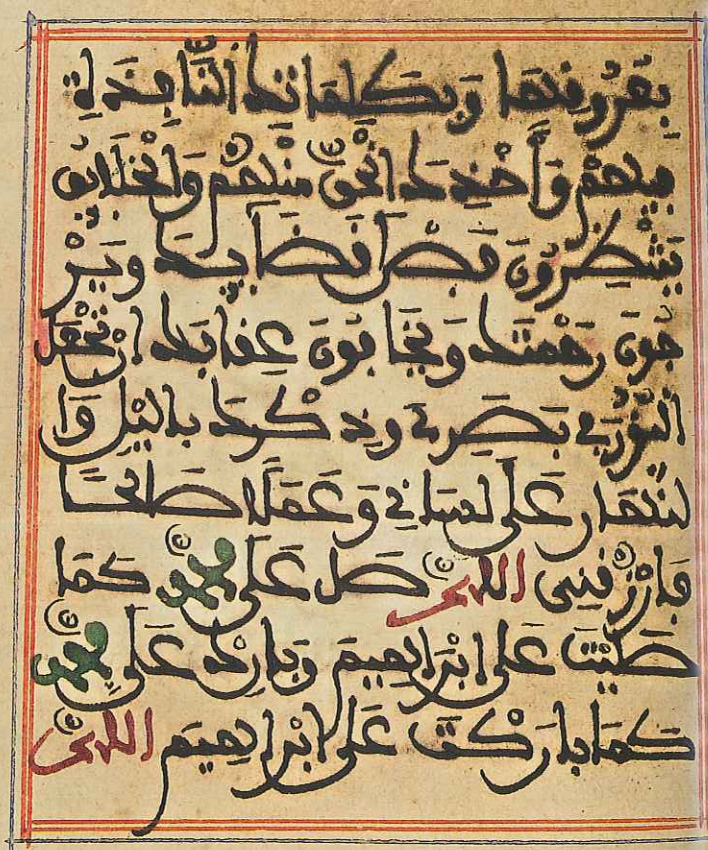 بعروفها وبكلماتك النافذة
فيهم وأخذك الحق منهم والخلايق
ينتظرون فصل قضايك وير
جون رحمتك ويخافون عقابك ان تجعل
النور في بصري وذكرك باليل وا
لنهار على لساني وعملا صالحا
فارزقني اللهم صل على محمد كما
صليت على ابراهيم وبارك على محمد
كما باركت على ابراهيم اللهم